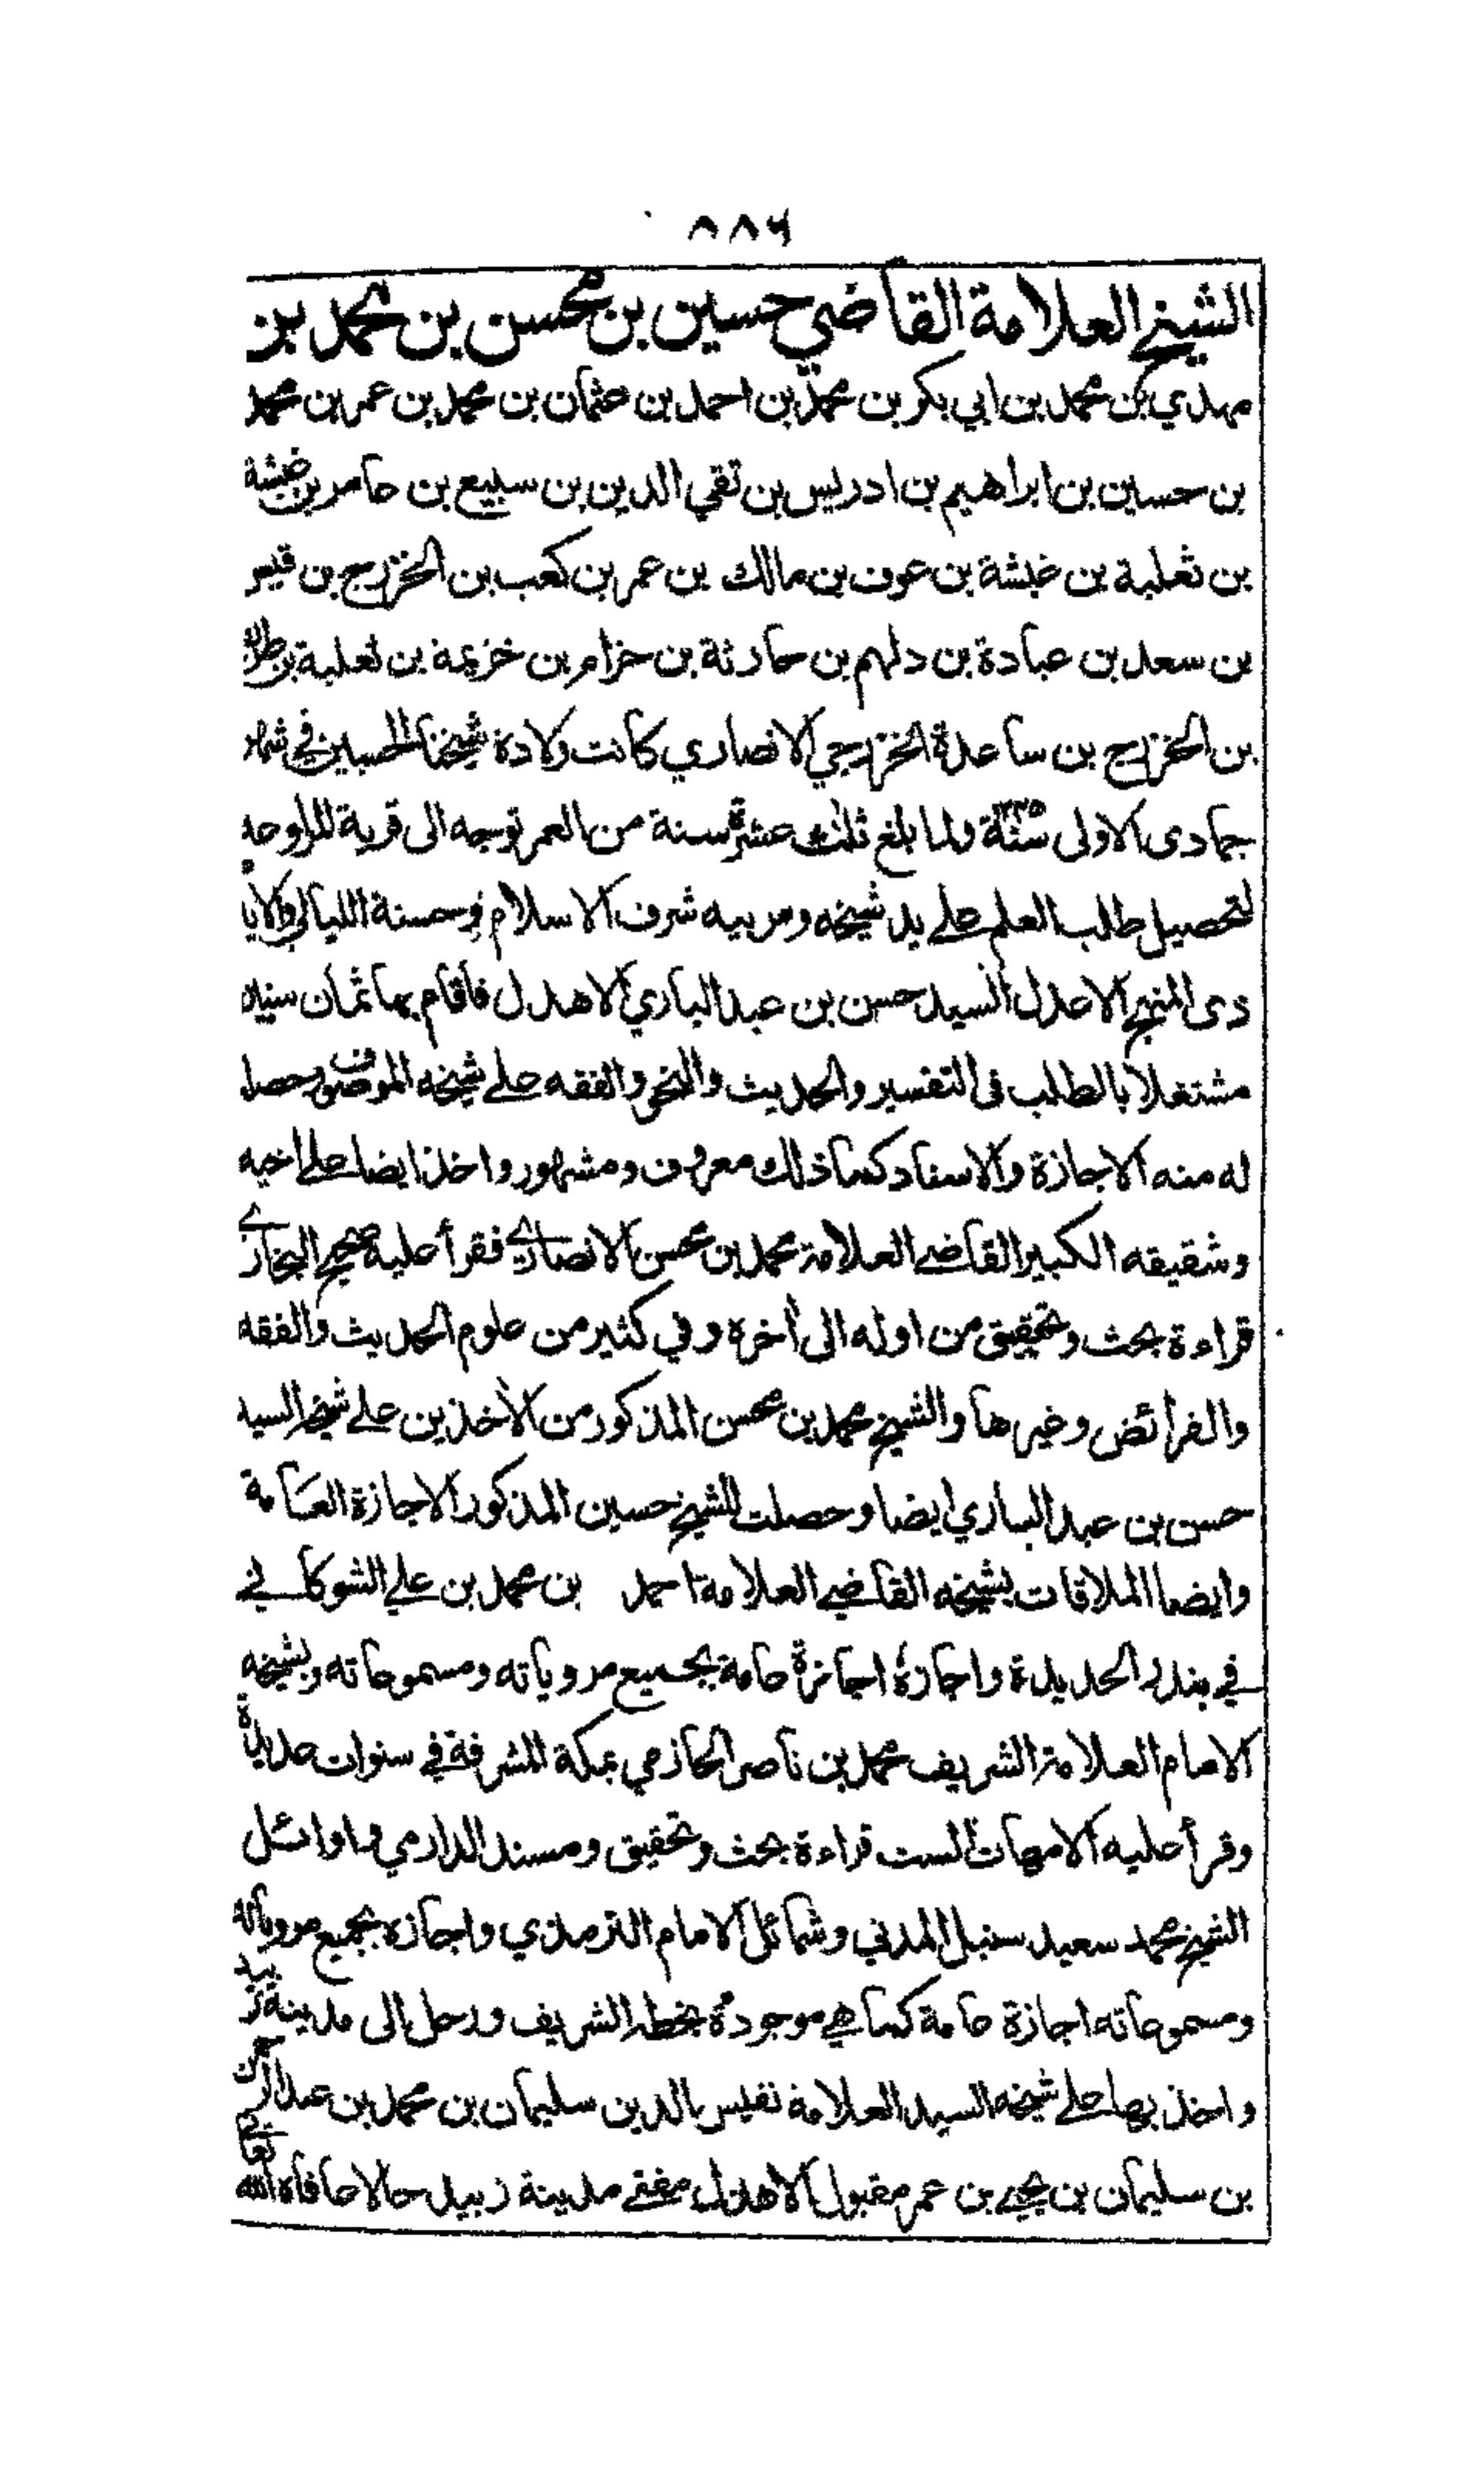 ٨٨٦
الشيخ العلامة القاضي حسين بن محسن بن محمد بن
مهدي بن محمد بن ابي بكر بن محمد بن احمد بن عثمان بن محمد بن عمر بن محمد
بن حسين بن ابراهيم بن ادريس بن تقي الدين بن سبيع بن عامر بن غبشة
بن ثعلبة بن غبشة بن عوف بن مالك بن عمر بن كعب بن الخزرج بن قيس
بن سعد بن عبادة بن دلهم بن حارثة بن حزام بن خزيمة بن ثعلبة بن
بن الخزرج بن ساعدة الخزرجي الانصاري كانت ولادة شيخنا الحسين في شهر
جمادى الاولى سنة ولما بلغ ثلث عشرة سنة من العمر توجه الى قرية المراوعه
لتحصيل طلب العلم على يد شيخه ومربيه شرف الاسلام وحسنة الليالي والايا
ذى المنهج الاعدل السيد حسن بن عبد الباري الاهدل فاقام بها ثمان سنين
مشتغلا بالطلب فى التفسير والحديث والنحو والفقه على شيخه الموصوف وحصل
له منه الاجازة والاسناد كما ذلك معروف ومشهور واخذ ايضا على اخيه
وشقيقه الكبير القاضي العلامة محمد بن محسن الانصاري فقرأ عليه صحيح البخاري
قراءة بحث وتحقيق من اوله الى أخره وفي كثير من علوم الحديث والفقه
والفرائض وغيرها والشيخ محمد بن محسن المذكور من الأخذين على شيخه السيد
حسن بن عبد الباري ايضا وحصلت للشيخ حسين المذكور الاجازة العامة
وايضا الملاقات بشيخه القاضي العلامة احمد بن محمد بن علي الشوكاني
في بندر الحديدة واجازه اجازة عامة بجميع مروياته ومسموعاته وبشيخه
الامام العلامة الشريف محمد بن ناصر الحازمي بمكة المشرفة في سنوات عديدة
وقرأ عليه الامهات الست قراءة بحث وتحقيق ومسند الدارمي واوائل
الشيخ محمد سعيد سنبل المدني وشمائل الامام الترمذي واجازه بجميع مروياته
ومسموعاته اجازة عامة كما هي موجودة بخطه الشريف ورحل الى مدينة زبيد
واخذ بها على شيخه السيد العلامة نفيس الدين سليمان بن محمد بن عبد الرحمن
بن سليمان بن يحيى بن عمر مقبول الاهدل مفتي مدينة زبيد حالا عافاه الله تعالى